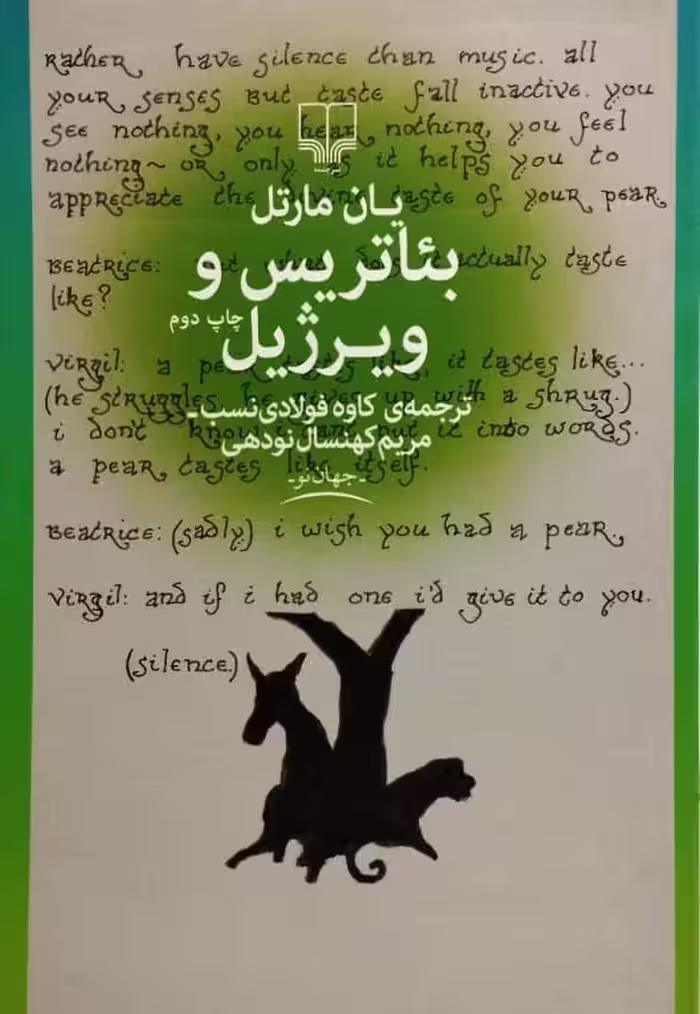 Rather have silence than music. all
your senses but taste fall inactive. you
see nothing, you hear nothing, you feel
nothing~ or only as it helps you to
appreciate the taste of your pear.
یان مارتل
Beatrice: actually taste
بئاتریس و
like?
ویرژیل
چاپ دوم
Virgil: a it tastes like...
(he struggles. he gives up with a shrug.)
ترجمه‌ی کاوه فولادی‌نسب-
i don't know put it into words.
مریم کهنسال نودهی
a pear tastes like itself.
-جهان‌نو-
Beatrice: (sadly) i wish you had a pear.
Virgil: and if i had one i'd give it to you.
(silence.)